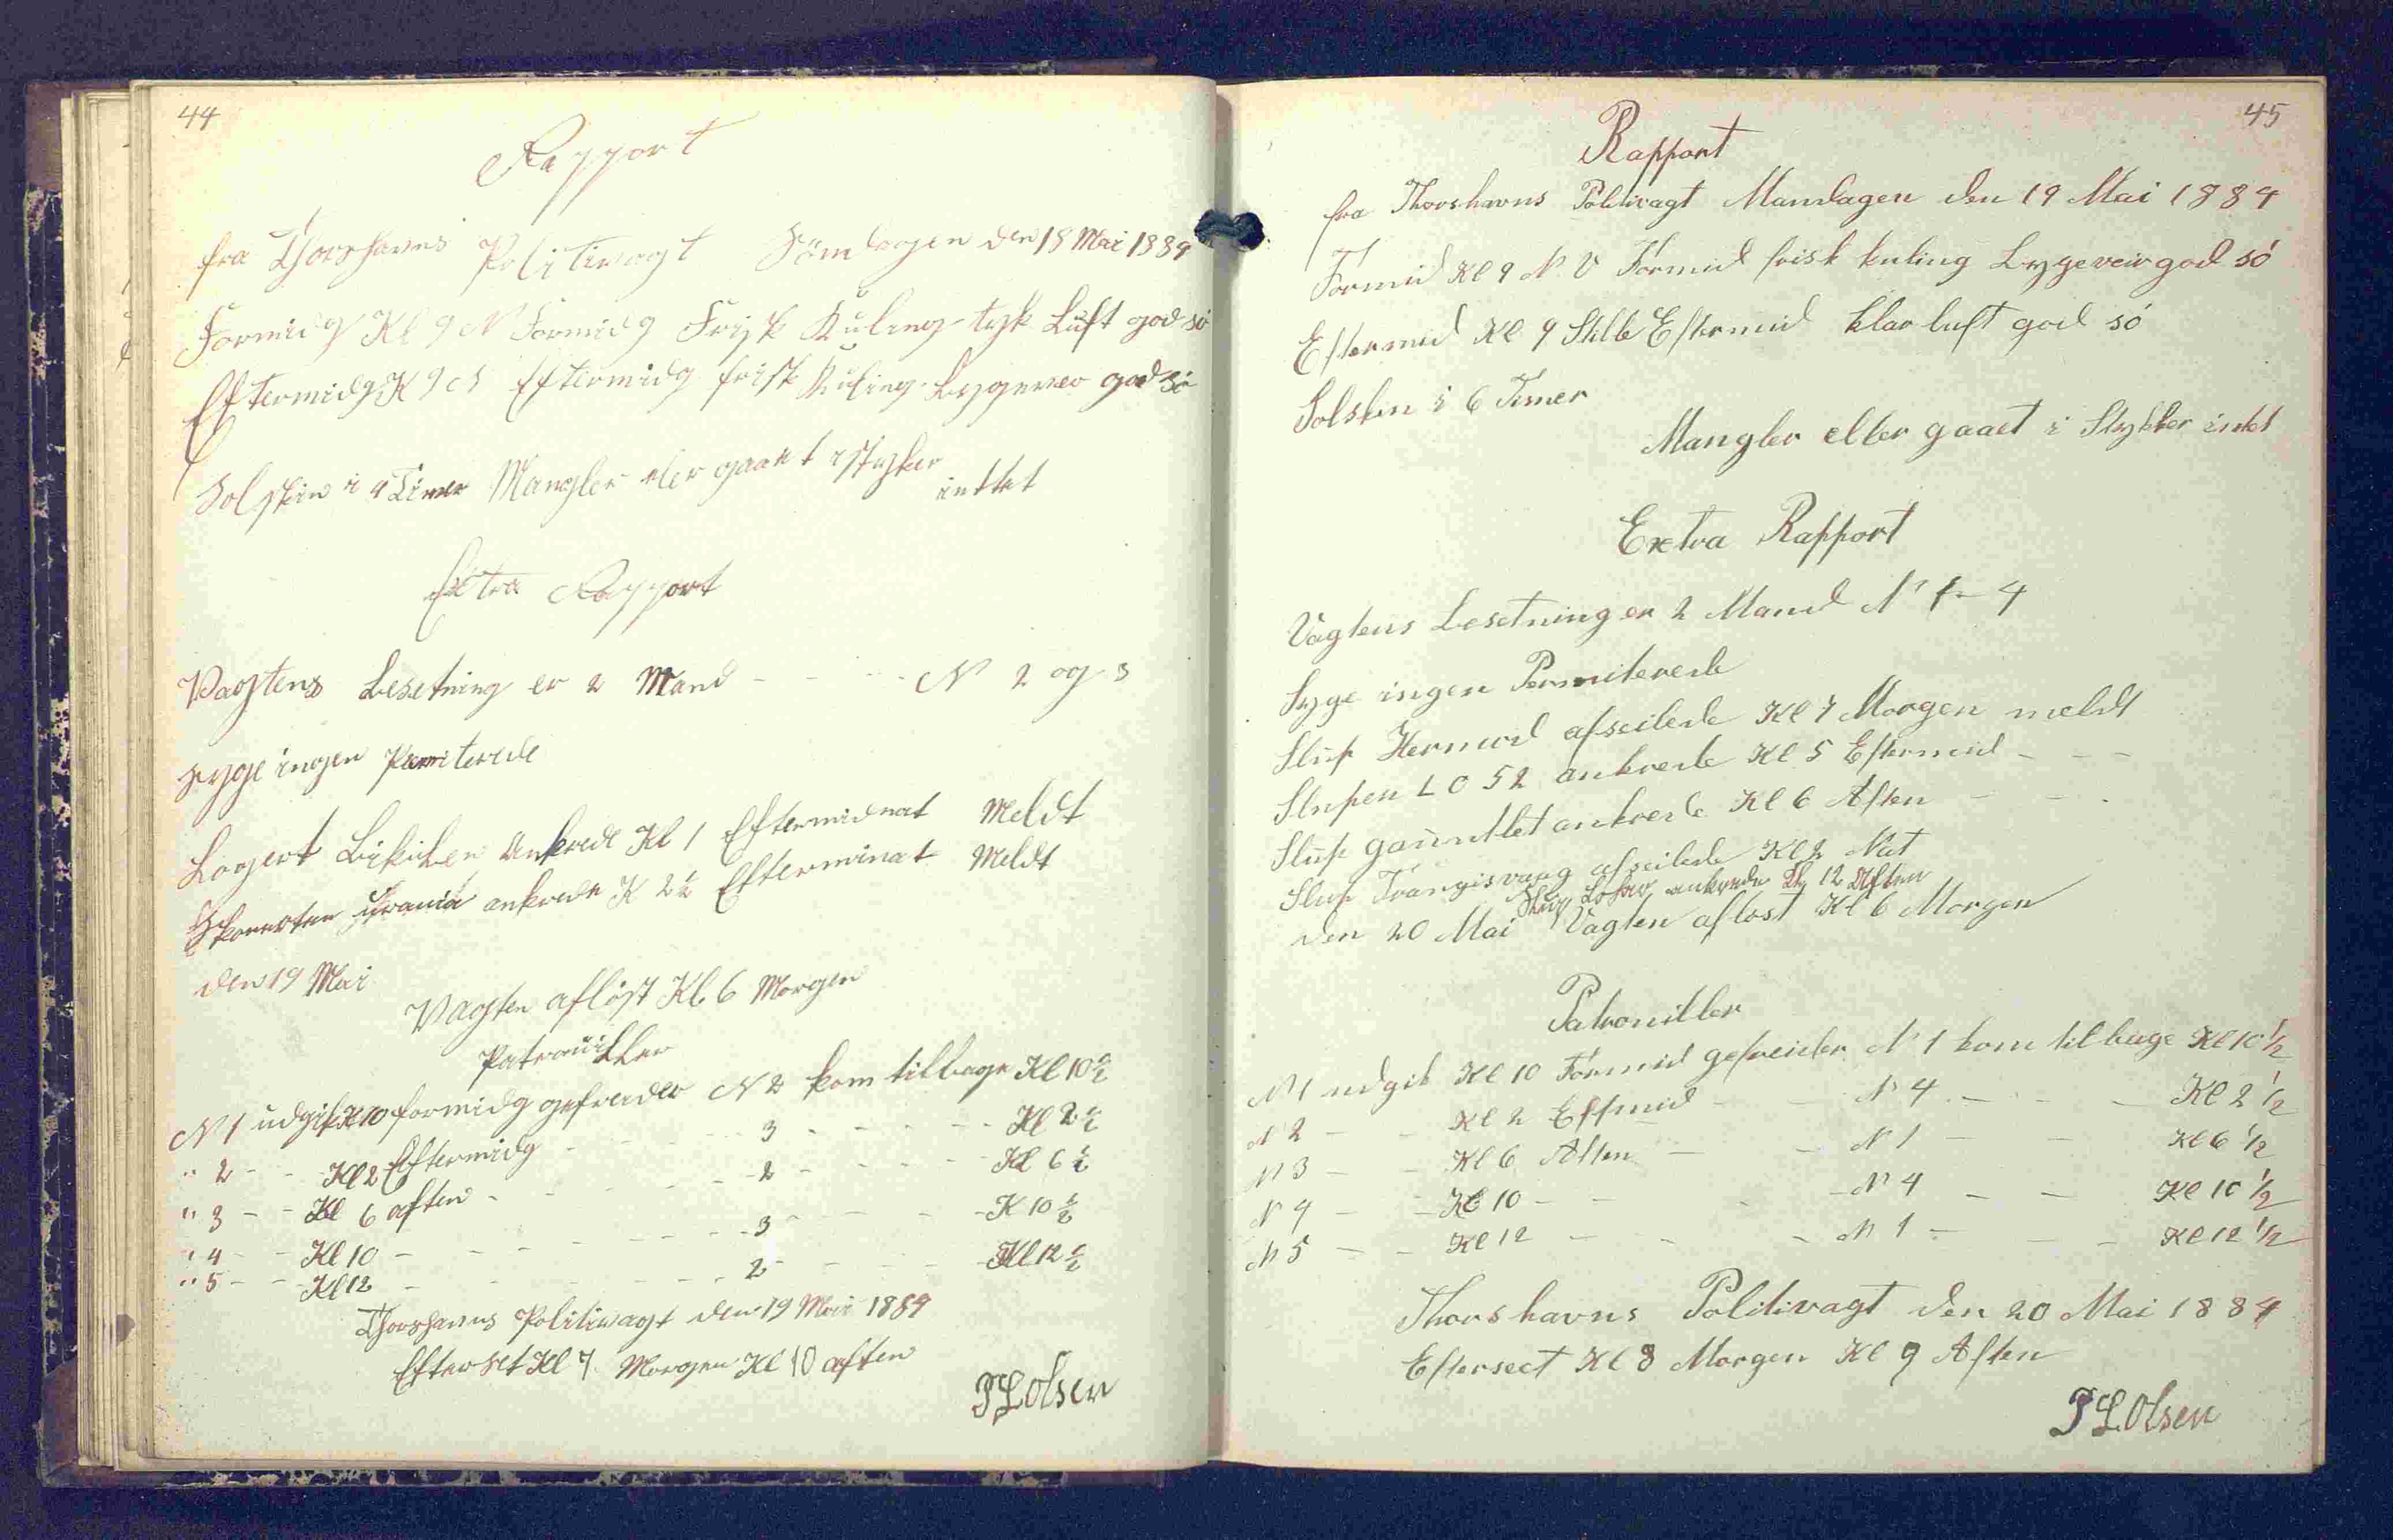 44
Rapport
fra Thorshavns Politivagt Søndagen den 18 Mai 1884
Formidg Kl 9 N Formidg Frisk Kuling tyk Luft god sö
Eftermidg K 9 N Eftermidg frisk Kuling Bygever god sö
Solskin i 4 Timer Mangler eler gaaet i Styker
inttet
Extra Rapport
Vagtens Besetning er 2 Mand - - - - N 2 og 3
syge ingen Permiterede
Logert ankrede Kl 1 Eftermidnat Meldt
Skonerten Urania ankrede K 2½ Efterminat Meldt
den 19 Mai
Vagten afløst Kl 6 Morgen
Patrouiller
N 1 udgik K 10 formidg gefreider N 2 kom tilbage Kl 10½
" 2 - - Kl 2 Eftermidg - - - - 3 - - - - Kl 2½
" 3 - - Kl 6 aften - - - - 2 - - - - Kl 6½
" 4 - - Kl 10 - - - - 3 - - - - K 10½
" 5 - - Kl 12 - - - - 2 - - - - Kl 12½
Thorshavns Politivagt den 19 Mai 1884
Efterset Kl 7 Morgen Kl 10 aften
P L Olsen
45
Rapport
fra Thorshavns Politivagt Mandagen den 19 Mai 1884
Formid Kl 9 N. V Formid frisk kuling Bygeveir god sö
Eftermid Kl 9 Stille Eftermid klar luft god sö
Solskin i 6 Timer
Mangler eller gaaet i Stykker intet
Extra Rapport
Vagtens Besetning er 2 Mand N 1 - 4
Syge ingen Permiterede
Slup Hermod afseilede Kl 7 Morgen meldt
Slupen L O 52 ankrede Kl 5 Eftermid - - -
Slup gauntlet ankrede Kl 6 Aften - - -
Slup Trangisvaag afseilede Kl 2 Nat
Slup ankrede Kl 12 Aften
den 20 Mai Vagten aflöst Kl 6 Morgen
Patrouiller
N 1 udgik Kl 10 Formid gefreider N 1 kom tilbage Kl 10½
N 2 - - Kl 2 Eftmid - - N 4 - - - Kl 2½
N 3 - - Kl 6 Aften - - N 1 - - Kl 6½
N 4 - - Kl 10 - - - N 4 - - Kl 10½
N 5 - - Kl 12 - - - N 1 - - Kl 12½
Thorshavns Politivagt den 20 Mai 1884
Efterseet Kl 8 Morgen Kl 9 Aften
P L Olsen